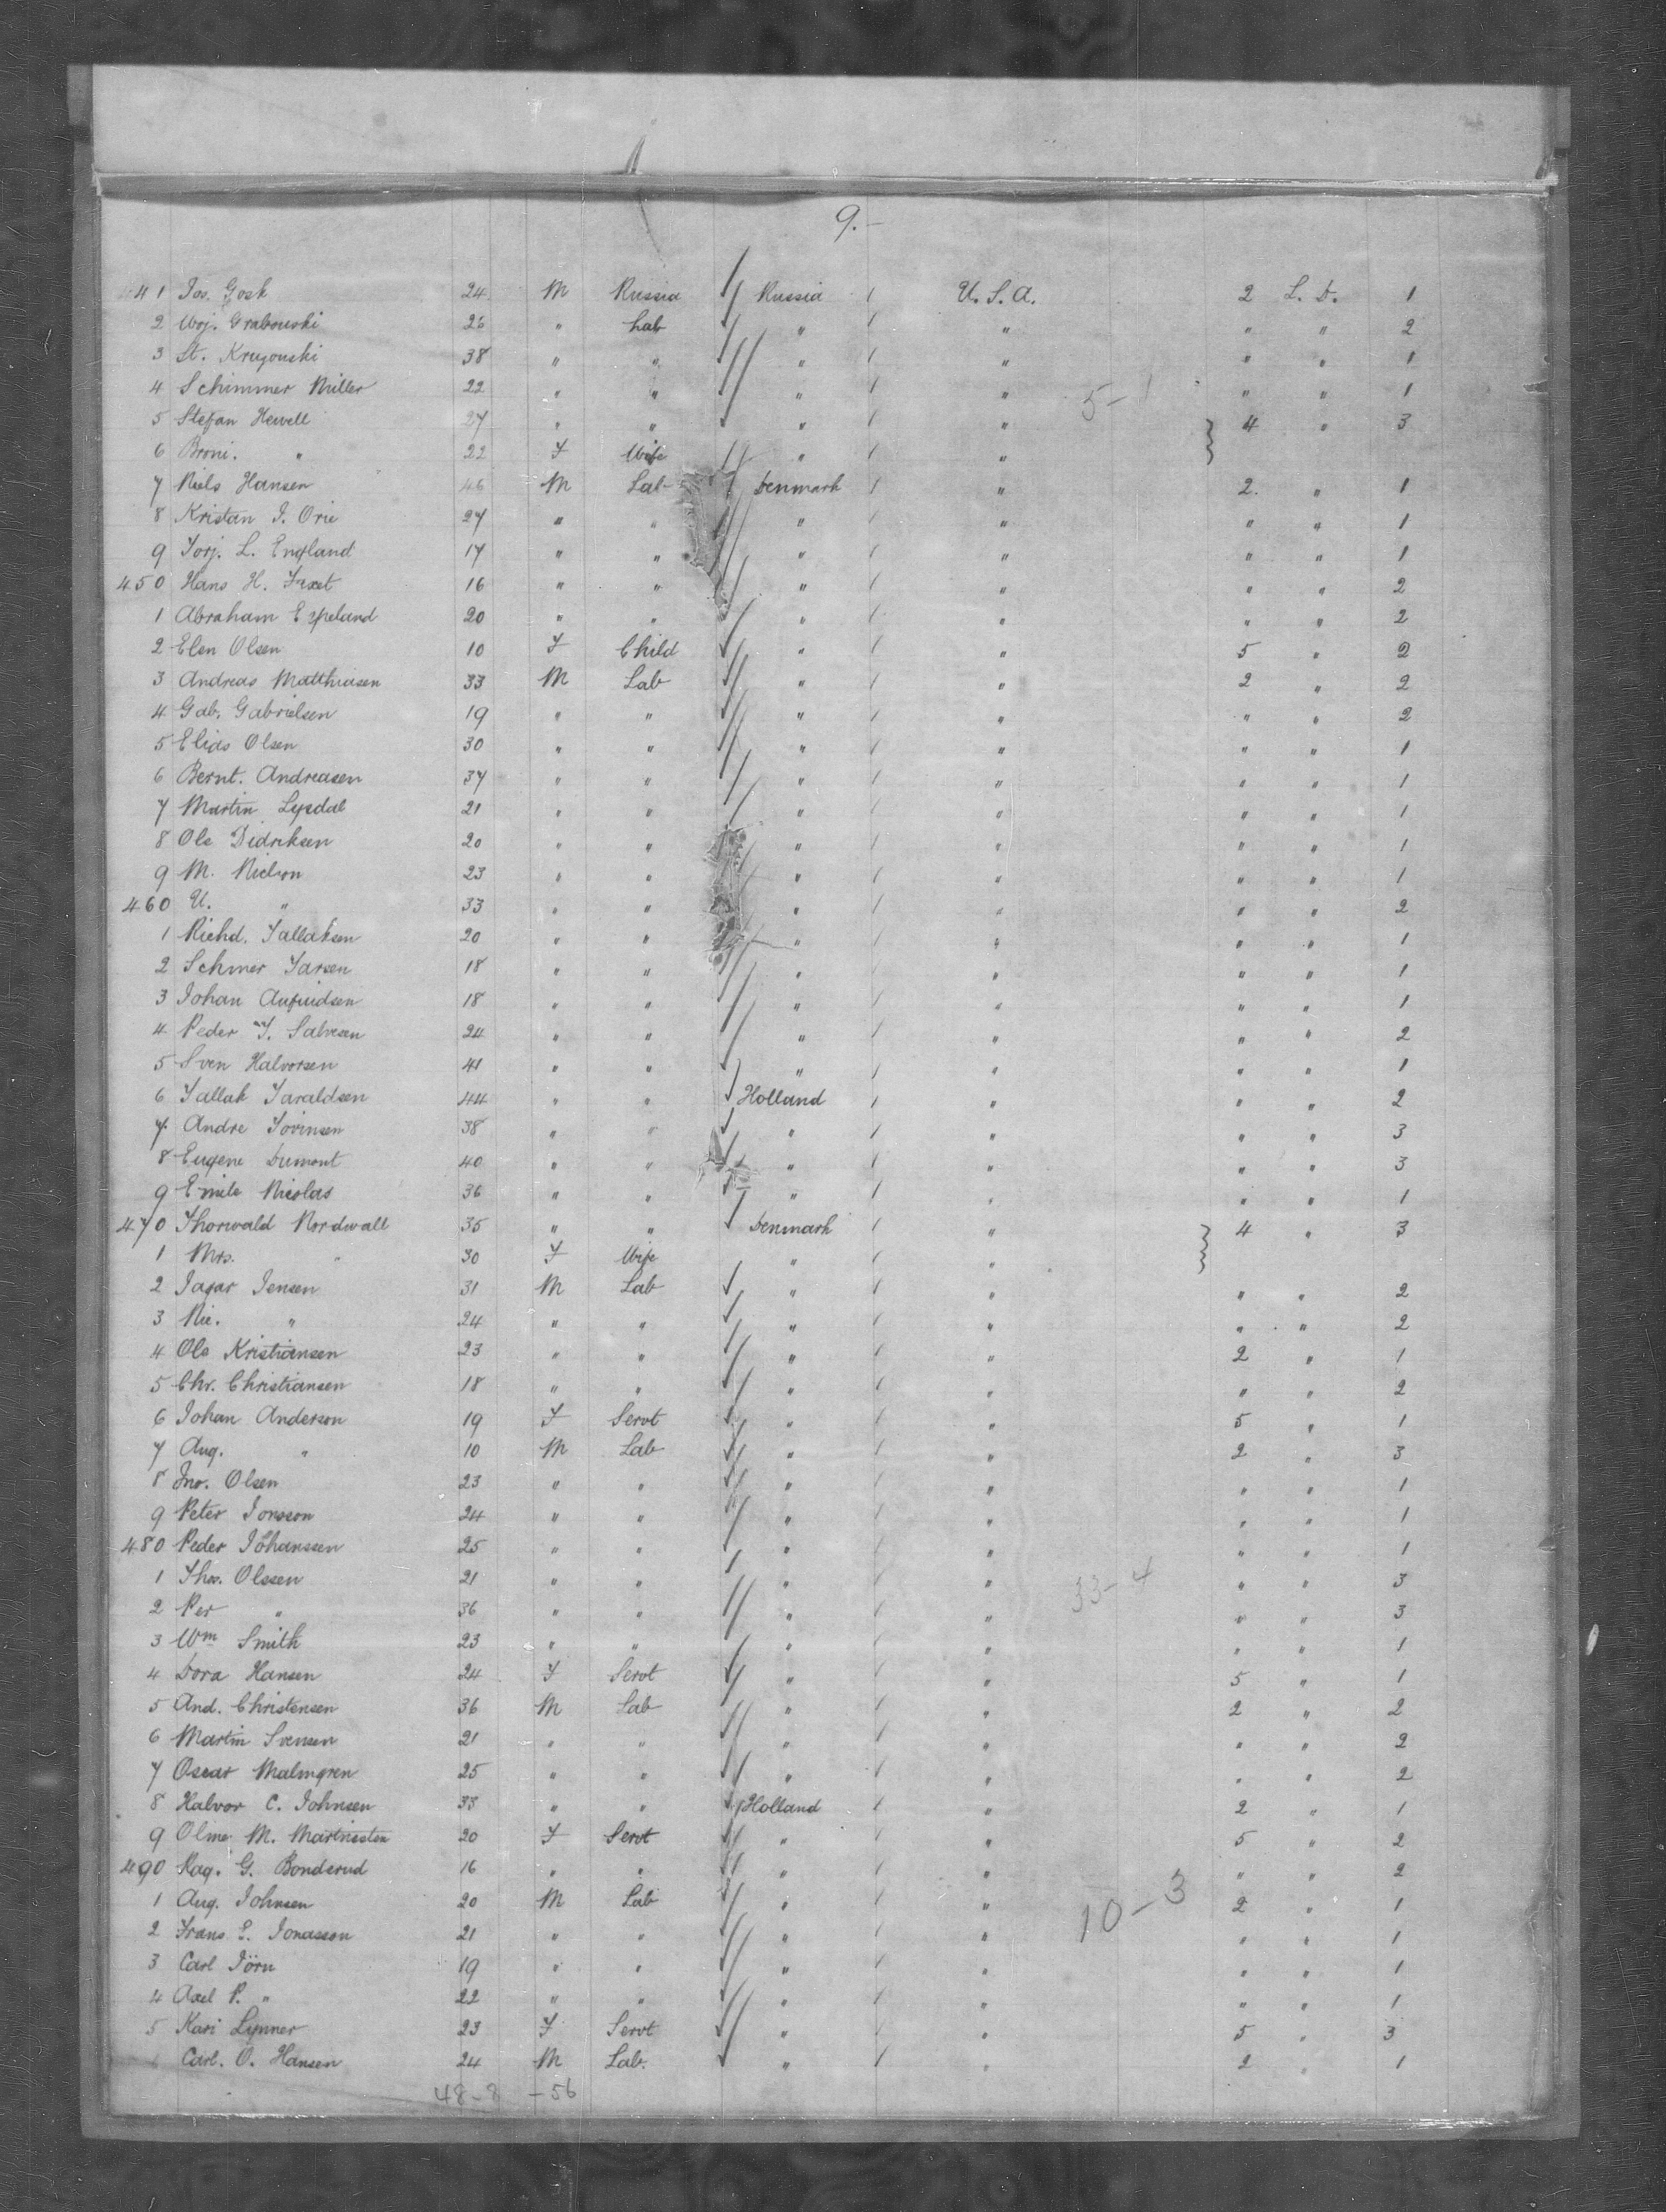 9.-
441 Jos. Gosk 24 M Russia Russia U.S.A. 2 L. D. 1
2 Woj. Grabowski 26 " Lab " " " " 2
3 St. Krugouski 38 " " " " " " 1
4 Schimmer Miller 22 " " " " 5-1 " " 1
5 Stefan Hewell 27 " " " " 4 " 3
6 Broni. " 22 F Wife " "
7 Niels Hansen 46 M Lab Denmark " 2 " 1
8 Kristan J. Orie 27 " " " " " " 1
9 Torj. L. England 17 " " " " " " 1
450 Hans H. 16 " " " " " " 2
1 Abraham Espeland 20 " " " " " " 2
2 Elen Olsen 10 F Child " " 5 " 2
3 Andreas Matthiasen 33 M Lab " " 2 " 2
4 Gab. Gabrielsen 19 " " " " " " 2
5 Elias Olsen 30 " " " " " " 1
6 Bernt. Andreasen 37 " " " " " " 1
7 Martin Lysdal 21 " " " " " " 1
8 Ole Didriksen 20 " " " " " " 1
9 M. Nielson 23 " " " " " " 1
460 U. " 33 " " " " " " 2
1 Richd. Tallaksen 20 " " " " " " 1
2 Schmer Jarsen 18 " " " " " " 1
3 Johan 18 " " " " " " 1
4 Peder T. Salvesen 24 " " " " " " 2
5 Sven Halvorsen 41 " " " " " " 1
6 Tallak Taraldsen 44 " " Holland " " " 2
7 Andre Tovinsen 38 " " " " " " 3
8 Eugene Dumont 40 " " " " " " 3
9 Emile Nicolas 36 " " " " " " 1
470 Thorwald Nordwall 35 " " Denmark " 4 " 3
1 Mrs. " 30 F Wife " "
2 Jagar Jensen 31 M Lab " " " " 2
3 Nie. " 24 " " " " " " 2
4 Ole Kristiansen 23 " " " " 2 " 1
5 Chr. Christiansen 18 " " " " " " 2
6 Johan Anderson 19 F Servt " " 5 " 1
7 Aug. " 10 M Lab " " 2 " 3
8 Jno. Olsen 23 " " " " " " 1
9 Peter Jonsson 24 " " " " " " 1
480 Peder Johanssen 25 " " " " " " 1
1 Thos. Olssen 21 " " " " 33-4 " " 3
2 Per " 36 " " " " " " 3
3 Wm Smith 23 " " " " " " 1
4 Dora Hansen 24 F Servt " " 5 " 1
5 And. Christensen 36 M Lab " " 2 " 2
6 Martin Svensen 21 " " " " " " 2
7 Oscar Malmgren 25 " " " " " " 2
8 Halvor C. Johnsen 33 " " Holland " 2 " 1
9 Olme M. Martinsten 20 F Servt " " 5 " 2
490 Rag. G. Bonderud 16 " " " " " " 2
1 Aug. Johnsen 20 M Lab " " 10-3 2 " 1
2 Frans E. Jonasson 21 " " " " " " 1
3 Carl Jörn 19 " " " " " " 1
4 Axel P. " 22 " " " " " " 1
5 Kari Lynner 23 F Servt " " 5 " 3
Carl. O. Hansen 24 M Lab. " " 2 " 1
48-8 -56